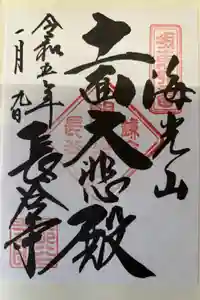 海光山
十一面大悲殿
長谷寺
令和五年
一月九日